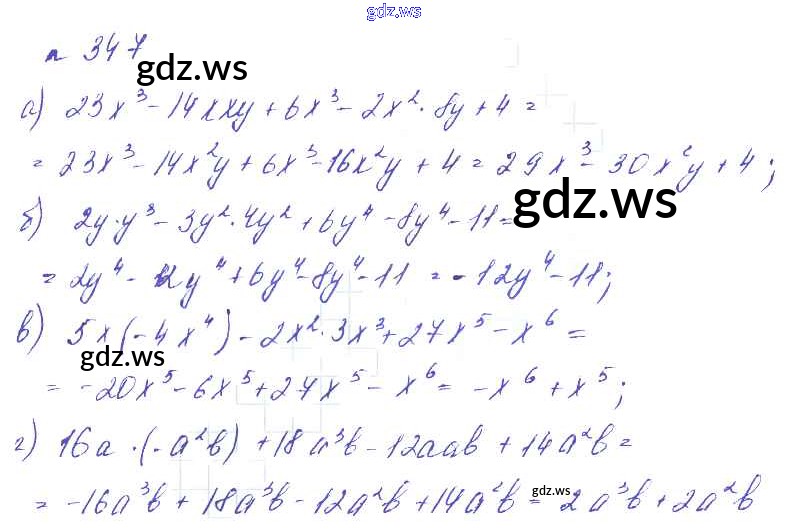 gdz.ws
n 347
gdz.ws
а) 23x³ - 14xxy + 6x³ - 2x² · 8y + 4 =
= 23x³ - 14x²y + 6x³ - 16x²y + 4 = 29x³ - 30x²y + 4;
gdz.ws
б) 2y·y³ - 3y²·4y² + 6y⁴ - 8y⁴ - 11 =
= 2y⁴ - 12y⁴ + 6y⁴ - 8y⁴ - 11 = -12y⁴ - 11;
в) 5x(-4x⁴) - 2x²·3x³ + 27x⁵ - x⁶ =
gdz.ws
= -20x⁵ - 6x⁵ + 27x⁵ - x⁶ = -x⁶ + x⁵;
г) 16a·(-a²b) + 18a³b - 12aab + 14a²b =
= -16a³b + 18a³b - 12a²b + 14a²b = 2a³b + 2a²b
gdz.ws